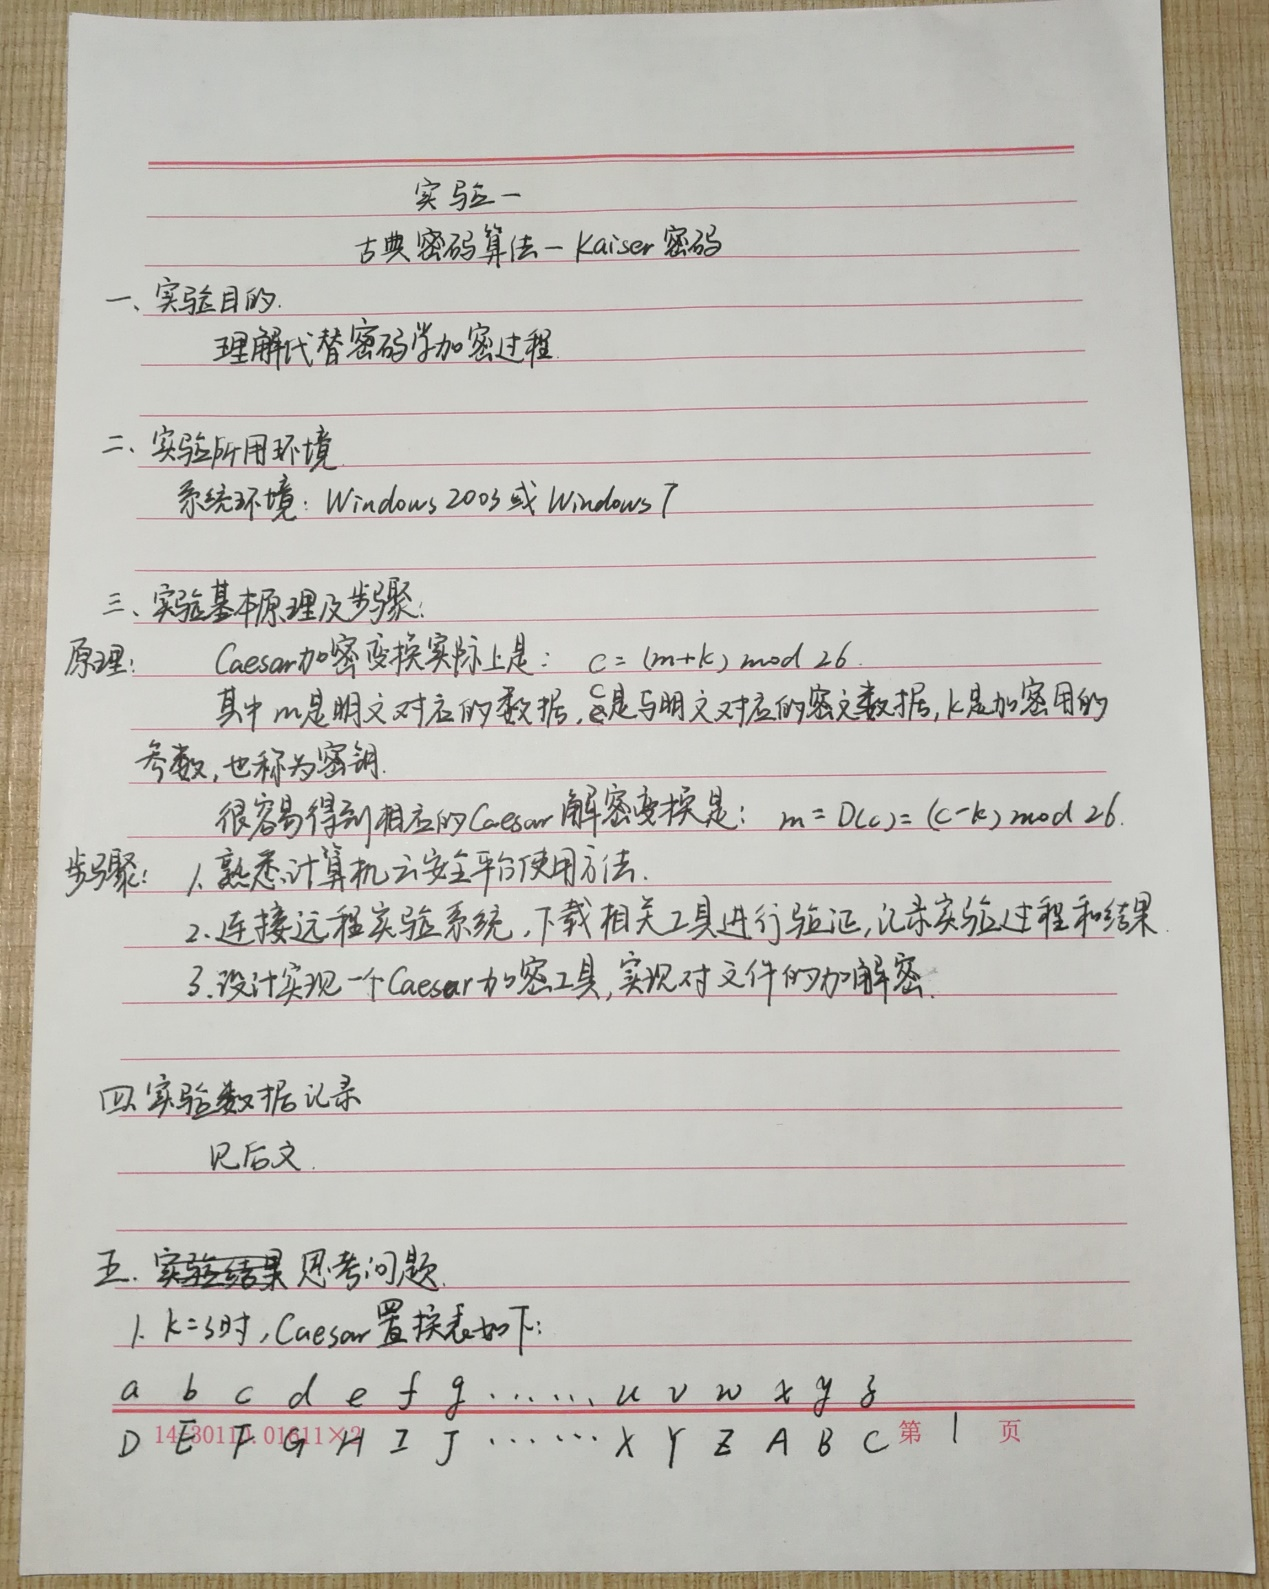 实验一
古典密码算法一Kaiser密码
一、实验目的.
理解代替密码学加密过程.
二、实验所用环境.
系统环境：Windows 2003 或 Windows 7
三、实验基本原理及步骤：
原理： Caesar加密变换实际上是： c = (m+k) mod 26.
其中m是明文对应的数据，c是与明文对应的密文数据，k是加密用的
参数，也称为密钥.
很容易得到相应的Caesar解密变换是： m = D(c) = (c-k) mod 26.
步骤： 1.熟悉计算机云安全平台使用方法.
2.连接远程实验系统，下载相关工具进行验证，记录实验过程和结果.
3.设计实现一个Caesar加密工具，实现对文件的加解密.
四、实验数据记录
见后文.
五. 实验结果 思考问题.
1. k=3时，Caesar置换表如下：
a b c d e f g ...... u v w x y z
D E F G H I J ...... X Y Z A B C
第 1 页